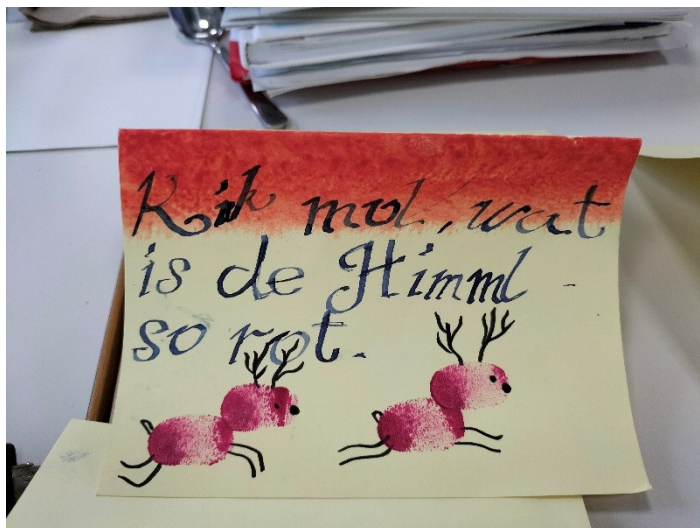 Kik mol, wat
is de Himml
so rot.